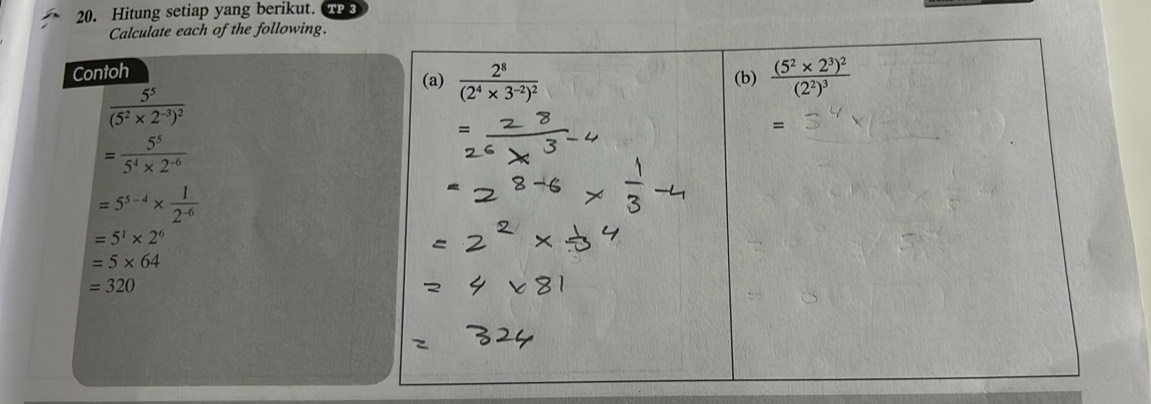 20. Hitung setiap yang berikut. TP 3
Calculate each of the following.
Contoh
5⁵/(5² × 2⁻³)²
= 5⁵/(5⁴ × 2⁻⁶)
= 5⁵⁻⁴ × 1/2⁻⁶
= 5¹ × 2⁶
= 5 × 64
= 320
(a) 2⁸/(2⁴ × 3⁻²)²
= 2⁸/(2⁶ × 3⁻⁴)
= 2⁸⁻⁶ × 1/3⁻⁴
= 2² × 1/3⁴
= 4 × 81
= 324
(b) (5² × 2³)²/(2²)³
= 5⁴ ×